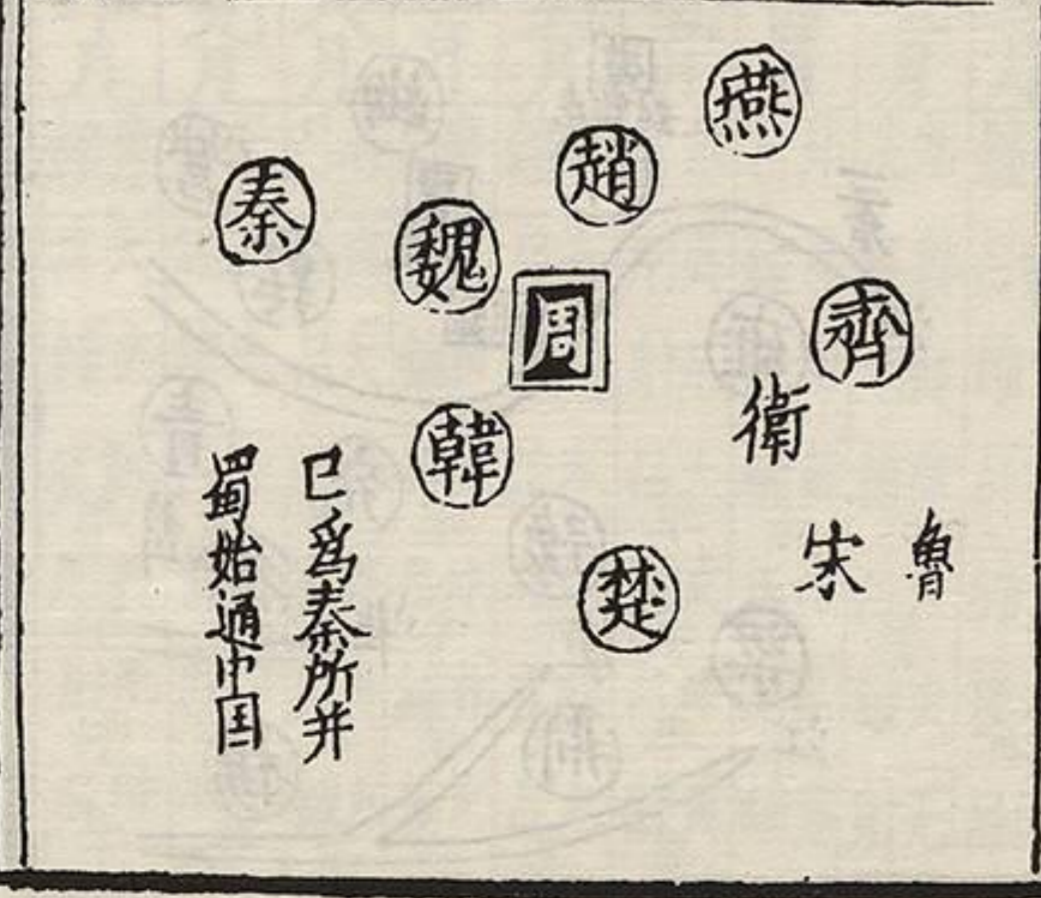 燕
趙
秦
魏
周
齊
衛
韓
楚
魯
宋
巳為秦所并
蜀始通中囯